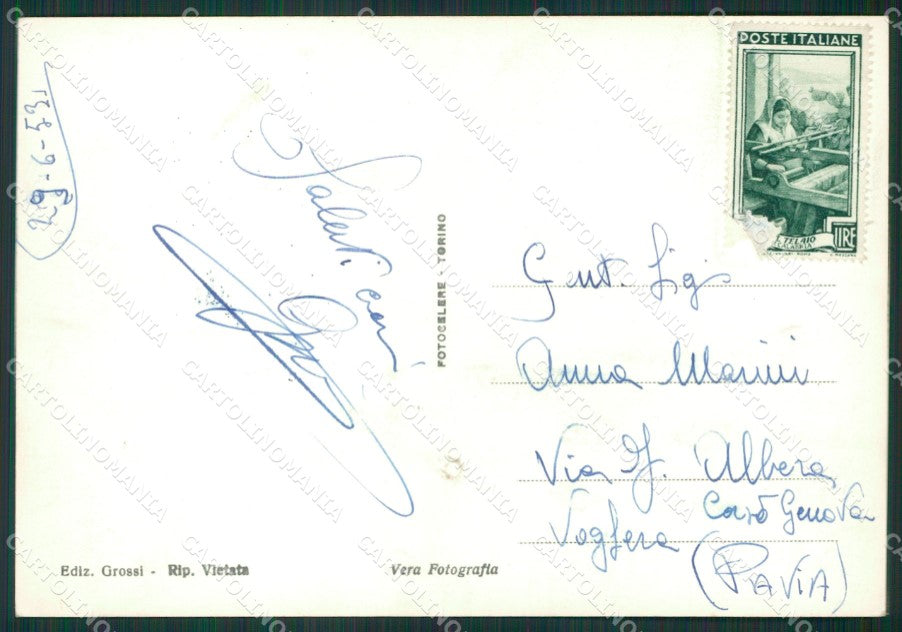 29-6-53
Saluti cari
POSTE ITALIANE
TELAIO
LIRE
FOTOCELERE - TORINO
Gent. Sig.
Anna Marini
Via G. Albera
Corso Genova
Voghera
(PAVIA)
Ediz. Grossi - Rip. Vietata
Vera Fotografia
CARTOLINOMANIA